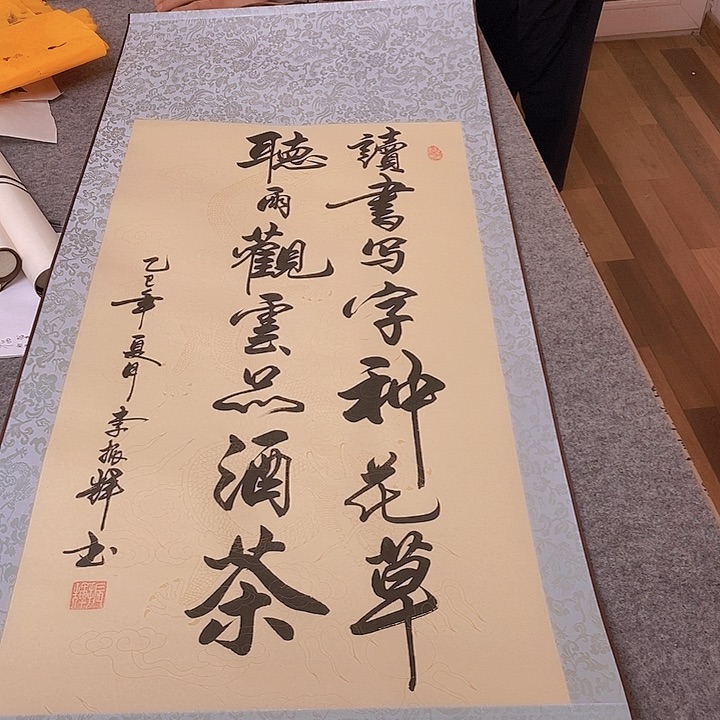 讀書写字种花草
聽雨觀雲品酒茶
乙巳年夏月李振輝书